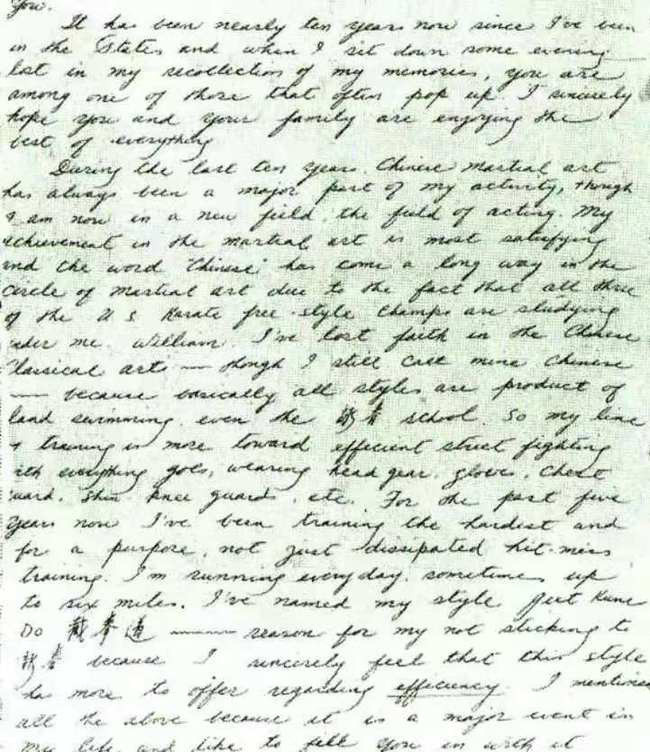 You.
It has been nearly ten years now since I've been
in the States and when I sit down some evening
lost in my recollection of my memories, you are
among one of those that often pop up. I sincerely
hope you and your family are enjoying the
best of everything
During the last ten years, Chinese martial art
has always been a major part of my activity, though
I am now in a new field, the field of acting. My
achievement in the martial art is most satisfying
and the word "Chinese" has come a long way in the
circle of martial art due to the fact that all three
of the U S Karate free-style champs are studying
under me. William, I've lost faith in the Chinese
Classical arts — though I still call mine Chinese
— because basically all styles are product of
land swimming, even the 詠春 school. So my line
of training is more toward efficient street fighting
with everything goes, wearing head gear, gloves, chest
guard, shin knee guards, etc. For the past five
years now I've been training the hardest and
for a purpose, not just dissipated hit-miss
training. I'm running everyday, sometimes up
to six miles. I've named my style Jeet Kune
Do 截拳道 —— reason for my not sticking to
詠春 because I sincerely feel that this style
has more to offer regarding efficiency. I mentioned
all the above because it is a major event in
my life, and like to fill you in with it